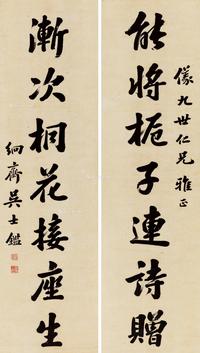 能將梔子連詩贈
儀九世仁兄雅正
漸次桐花接座生
絅齋吳士鑑